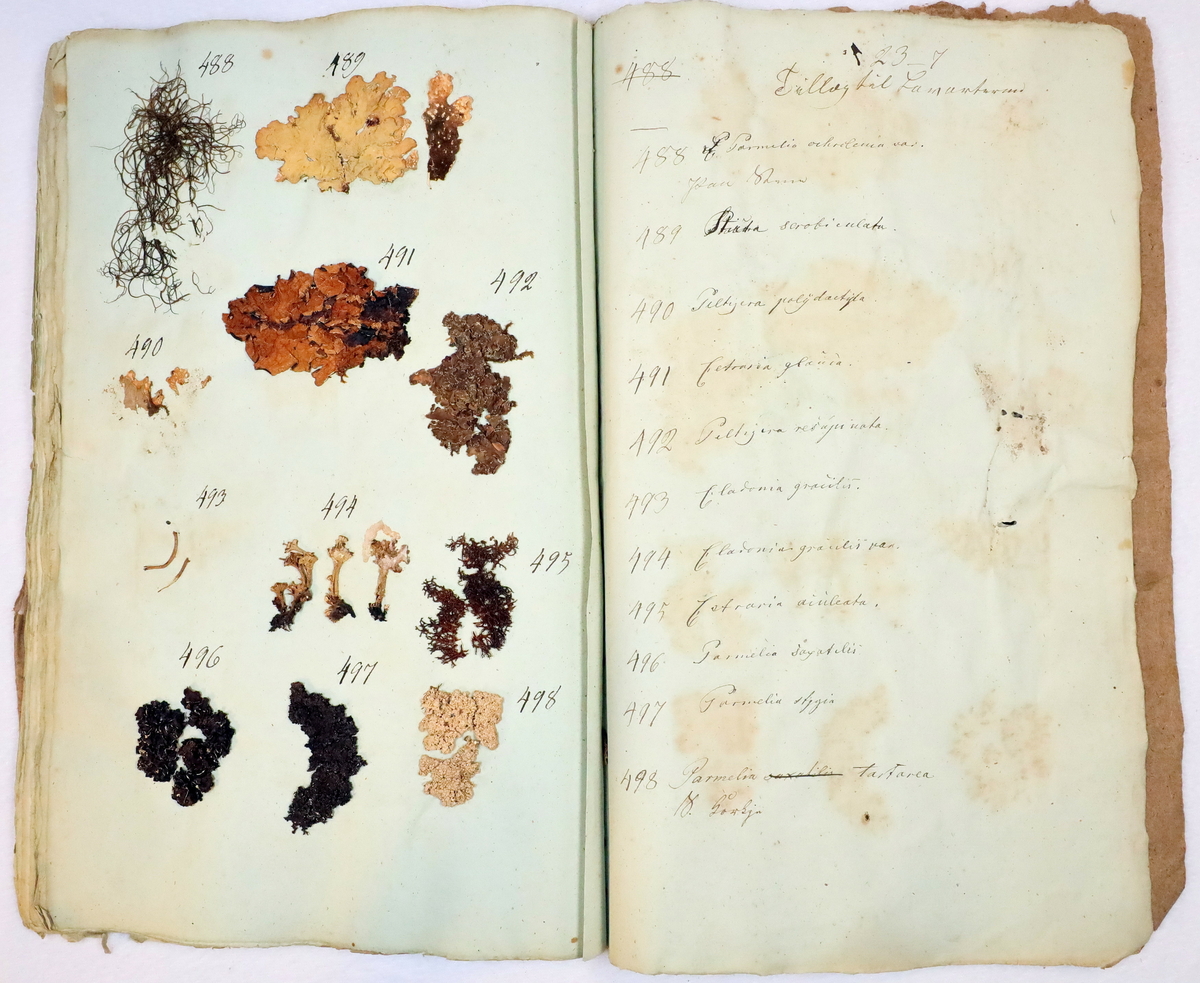 488
489
491
492
490
493
494
495
496
497
498
23_7
488
Tillæg til
488 Parmelia ochroleuca var.
489 Sticta scrobiculata.
490 Peltigera polÿdactÿla.
491 Cetraria glauca.
492 Peltigera resupinata.
493 Cladonia gracilis.
494 Cladonia gracilis var.
495 Cetraria aculeata.
496. Parmelia saxatilis
497 Parmelia stygia
498 Parmelia saxatilis tartarea
Korkje